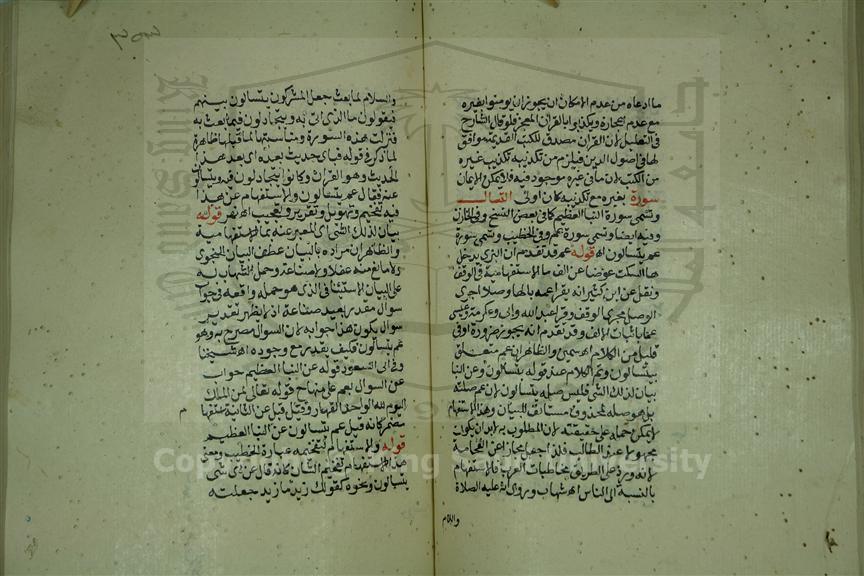 ما ادعاه من عدم الامكان ان يجوز ان يومنوا بغيره
مع عدم اعجازه ويكذبوا بالقران المعجز فلو قال الشارح
في التعليل لان القران مصدق للكتب القديمة موافق
لها في اصول الدين فيلزم من تكذيبه تكذيب غيره
من الكتب لان ما في غيره موجود فيه فلا يمكن الايمان
بغيره مع تكذيبه كان اولى سورة التساؤل
وتسمى سورة النبا العظيم كما في بعض النسخ وفي الخازن
وفيه ايضا وتسمى سورة عم وفي الخطيب وتسمى سورة
عم يتسالون اه قوله عم قد تقدم ان البزي يدخل
ها السكت عوضا عن الف ما الاستفهامية في الوقف
ونقل عن ابن كثير انه يقرا عمه بالها وصلا اجرى
الوصل مجرى الوقف وقرا عبد الله وابي وعكرمة وعيسى
عما باثبات الالف وقد تقدم انه يجوز ضرورة او في
قليل من الكلام اه سمين والظاهر ان عم متعلق
بيتسالون وتم الكلام عند قوله يتسالون وعن النبا
بيان لذلك الشي فليس صلة يتسالون لان عم صلته
بل هو صلة لمحذوف مستانف للبيان وهذا الاستفهام
لا يمكن حمله على حقيقته لان المطلوب به لا بد ان يكون
مجهولا عند الطالب فلذا جعل مجازا عن الفخامة
لانه ورد على طريق مخاطبات العرب فالاستفهام
بالنسبة الى الناس اه شهاب وروي انه عليه الصلاة
والسلام
والسلام لما بعث جعل المشركون يتسالون بينهم
فيقولون ما الذي اتى به ويتجادلون فيما بعث به
فنزلت هذه السورة ومناسبتها لما قبلها ظاهرة
لما ذكر في قوله فباي حديث بعده اي بعد هذا
الحديث وهو القران وكانوا يتجادلون فيه ويتسالون
عنه فقال عم يتسالون والاستفهام عن هذا
فيه تفخيم وتهويل وتقرير وتعجيب اه نهر قوله
بيان لذلك الشي اي المعبر عنه بما الاستفهامية
والظاهر ان مراده بالبيان عطف البيان النحوي
ولا مانع منه عقلا ولا صناعة وحمل الشهاب له
على البيان الاستئنافي الذي هو جملة واقعة في جواب
سوال مقدر بعيد صناعة اذ لا يظهر تقدير
سوال يكون هذا جوابه لان السوال مصرح به وهو
عم يتسالون فكيف يقدر مع وجوده اه شيخنا
وفي ابي السعود قوله عن النبا العظيم جواب
عن السوال بعم على منهاج قوله تعالى لمن الملك
اليوم لله الواحد القهار وقيل قبل عن الثانية استفهام
مضمر كانه قيل عم يتسالون عن النبا العظيم
قوله والاستفهام لتفخيمه عبارة الخطيب ومعنى
هذا الاستفهام تفخيم الشان كانه قال عن اي شي
يتسالون ونحوه كقولك زيد ما زيد جعلته